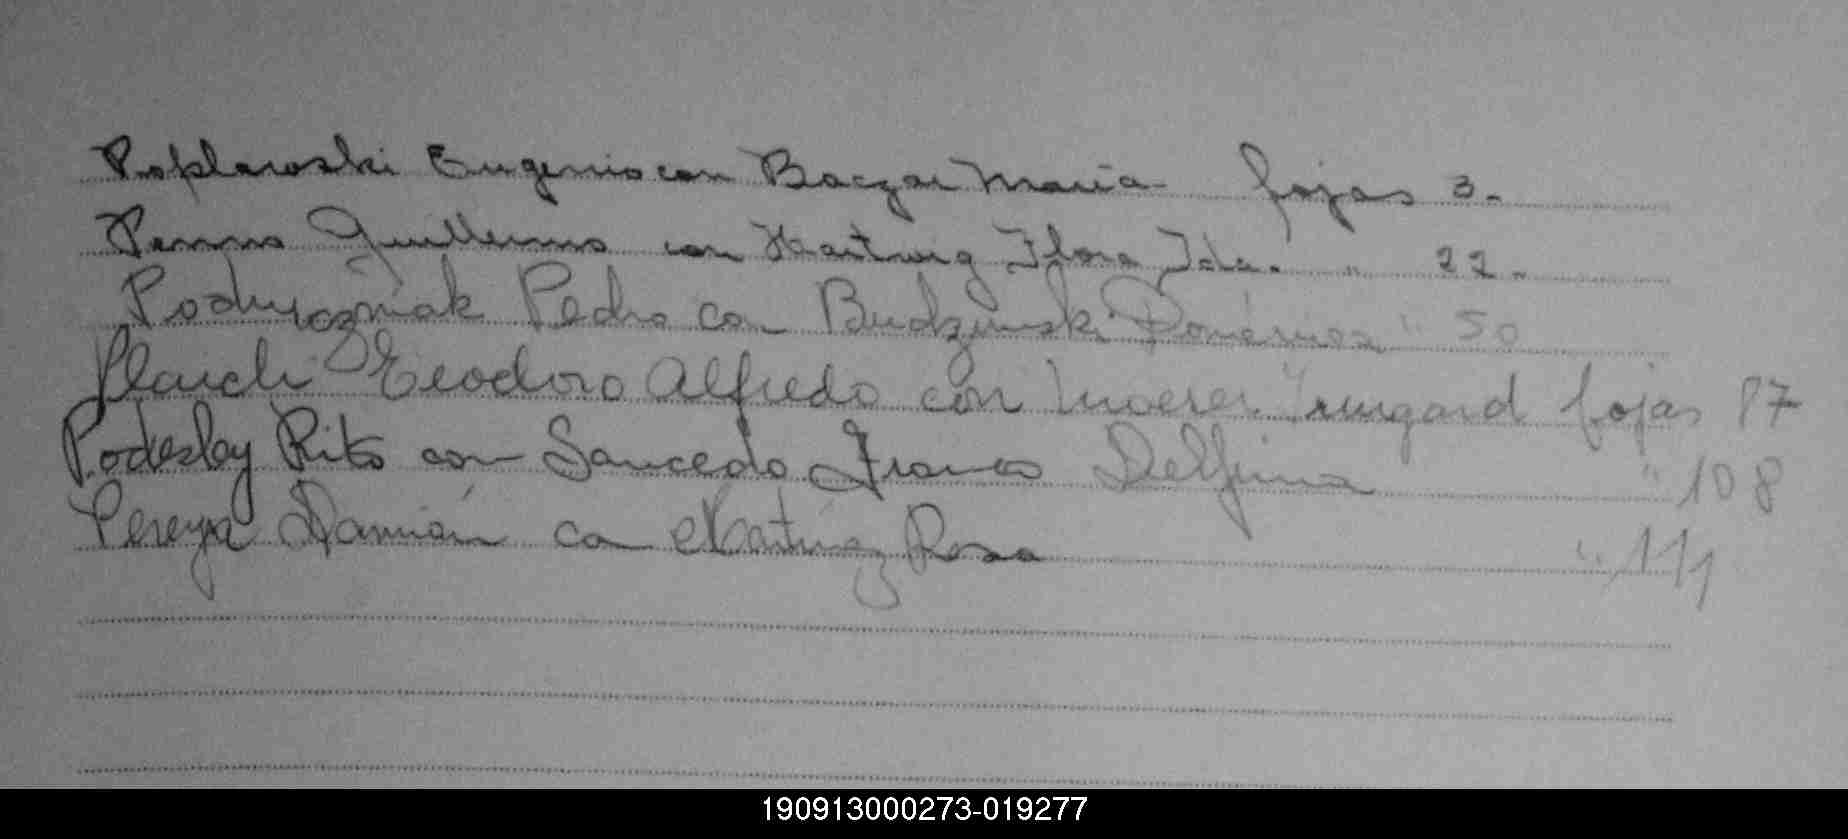 Poplawski Eugenio con Baczar Maria fojas 3.
Penno Guillermo con Hartwig Flora Ida. " 22.
Pedro con Budzinski " 50
Teodoro Alfredo con Moerer Irmgard fojas 87
Podesley Rito con Saucedo Franco Delfina " 108
Pereyra Damián con Martinez Rosa " 111
190913000273-019277